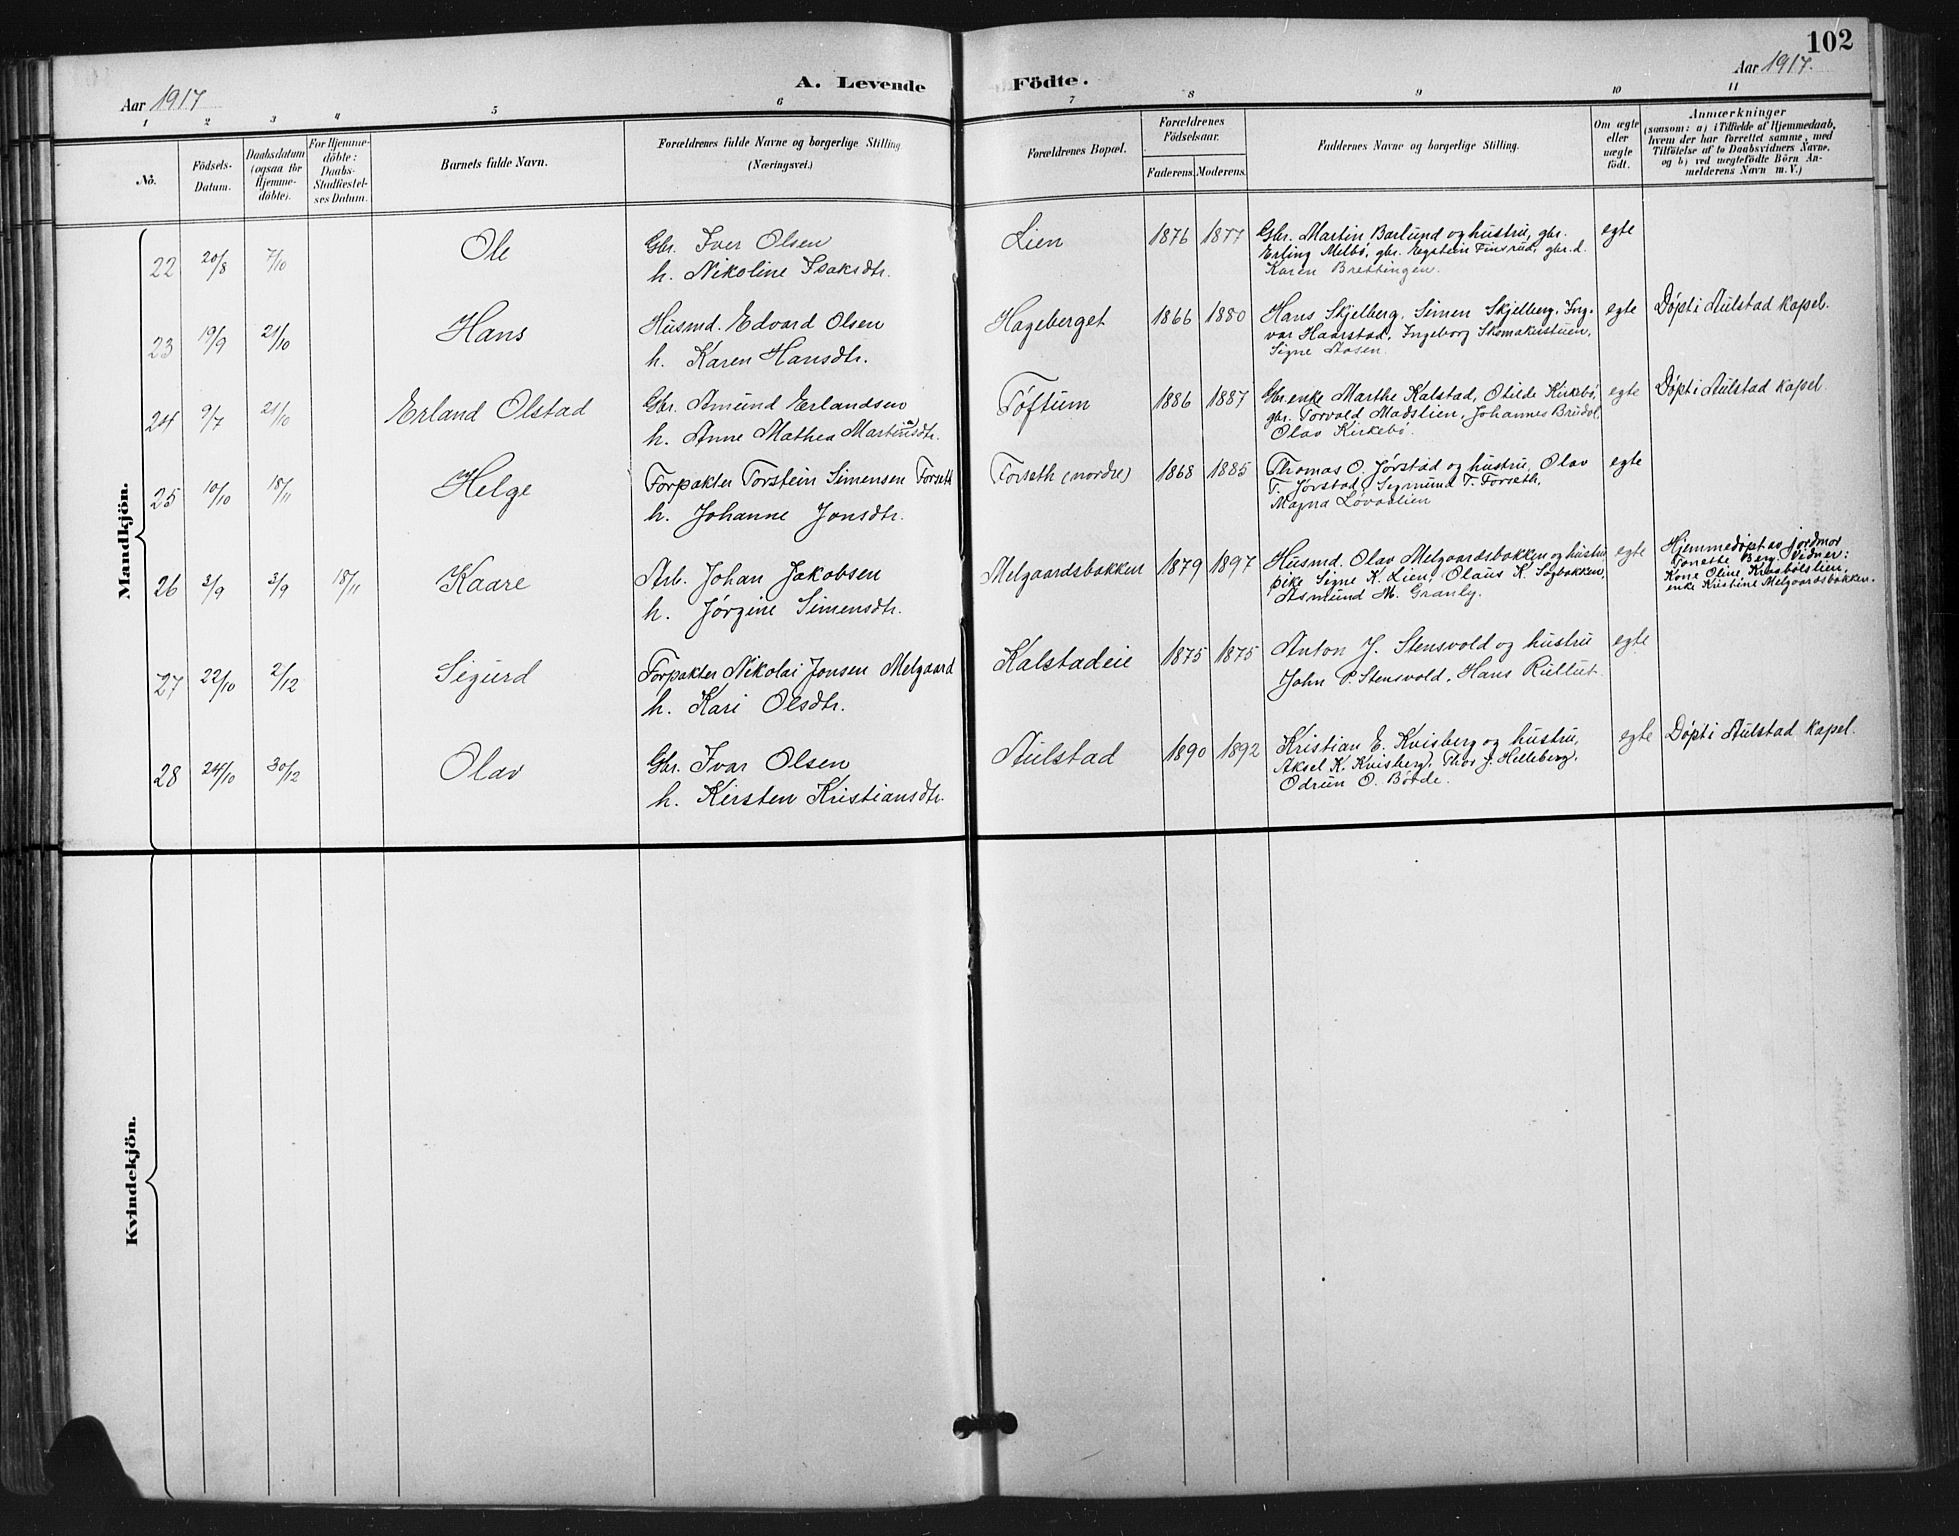 102
Aar 1917
A. Levende Födte.
Aar 1917.
1 2 3 4 5 6 7 8 9 10 11
No.
Födsels-Datum.
Daabsdatum (ogsaa for Hjemme-döbte).
For Hjemme-döbte: Daabs-Stadfæstel-ses Datum.
Barnets fulde Navn.
Forældrenes fulde Navne og borgerlige Stilling
(Næringsvei.)
Forældrenes Bopæl.
Forældrenes Födselsaar.
Faderens. Moderens.
Faddernes Navne og borgerlige Stilling.
Om ægte eller uægte födt.
Anmærkninger
(saasom: a) i Tilfælde af Hjemmedaab,
hvem der har forrettet samme, med
Tilföielse af to Daabsvidners Navne,
og b) ved uægtefödte Börn An-
melderens Navn m. V.)
Mandkjön.
22 20/8 7/10 Ole
Gbr. Iver Olsen
h. Nikoline Isaksdtr.
Lien 1876 1877
Gbr. Martin Barlund og hustru, gbr.
Erling Melbø, gbr. Egstein Finsrud, gbr.d.
Karen Brettingen.
egte
23 19/9 21/10 Hans
Husmd. Edvard Olsen
h. Karen Hansdtr.
Hageberget 1866 1880
Hans Skjelberg, Simen Skjelberg, Ing-
var Haarstad, Ingeborg Skomakerstuen,
Signe Aasen.
egte
Døpt i Aulstad kapel.
24 9/7 21/10 Erland Olstad
Gbr. Amund Erlandsen
h. Anne Mathea Martinusdtr.
Tøftum 1886 1887
Gbr.enke Marthe Kalstad, Otilde Kirkebø,
gbr. Torvald Madslien, Johannes Brudal,
Olav Kirkebø.
egte
Døpt i Aulstad kapel.
25 10/10 18/11 Helge
Forpakter Torstein Simensen Forseth
h. Johanne Jonsdtr.
Forseth (nordre) 1868 1885
Thomas O. Jørstad og hustru, Olav
T. Jørstad, Sigmund T. Forseth,
Magna Løvaslien
egte
26 2/9 3/9 18/11 Kaare
Arb. Johan Jakobsen
h. Jørgine Simensdtr.
Melgaardsbakken 1879 1897
Husmd. Olav Melgaardsbakken og hustru
pike Signe K. Lien, Olaus K. Søgbakken,
Asmund M. Granly.
egte
Hjemmedøpt av jordmor
Tonette Berg. Vidner:
Kone Oline
enke Kristine Melgaardsbakken.
27 22/10 2/12 Sigurd
Forpakter Nikolai Jonsen Melgaard
h. Kari Olsdtr.
Kalstadeie 1875 1875
Anton J. Stensvold og hustru
John P. Stensvold, Hans Rullut.
egte
28 24/10 30/12 Olav
Gbr. Ivar Olsen
h. Kirsten Kristiansdtr.
Aulstad 1890 1892
Kristian E. Kvisberg og hustru,
Aksel K. Kvisberg, Thor J. Helleberg,
Odrun O. Børde.
egte
Døpt i Aulstad kapel.
Kvindekjön.